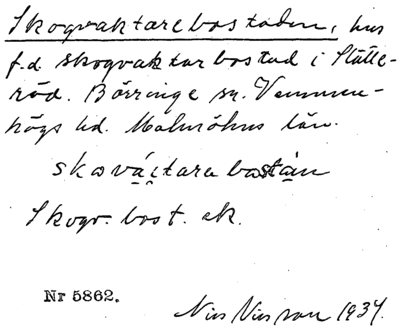 Skogvaktarebostaden, hus
f.d. skogvaktarbostad i Slätte-
röd. Börringe sn. Vemmen-
högs hd. Malmöhus län.
skovåctarebostån
Skogv. bost. ek.
Nr 5862.
Nils Nilsson 1934.